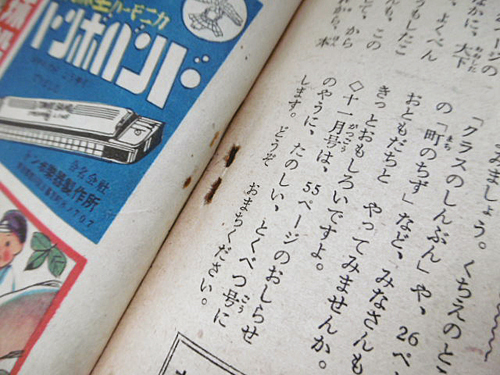 ジの
なかに、天下
で、よくべん
もしたこ
う。この
から
本
みましょう。くちえのとこ
「クラスのしんぶん」や、26ペ
の「町のちず」など、みなさんも
おともだちと やってみませんか。
きっとおもしろいですよ。
◇十一月号は、55ページのおしらせ
のように、たのしい、とくべつ号に
します。どうぞ おまちください。
ハーモニカ
トンボバンド
合名会社
トンボ楽器製作所